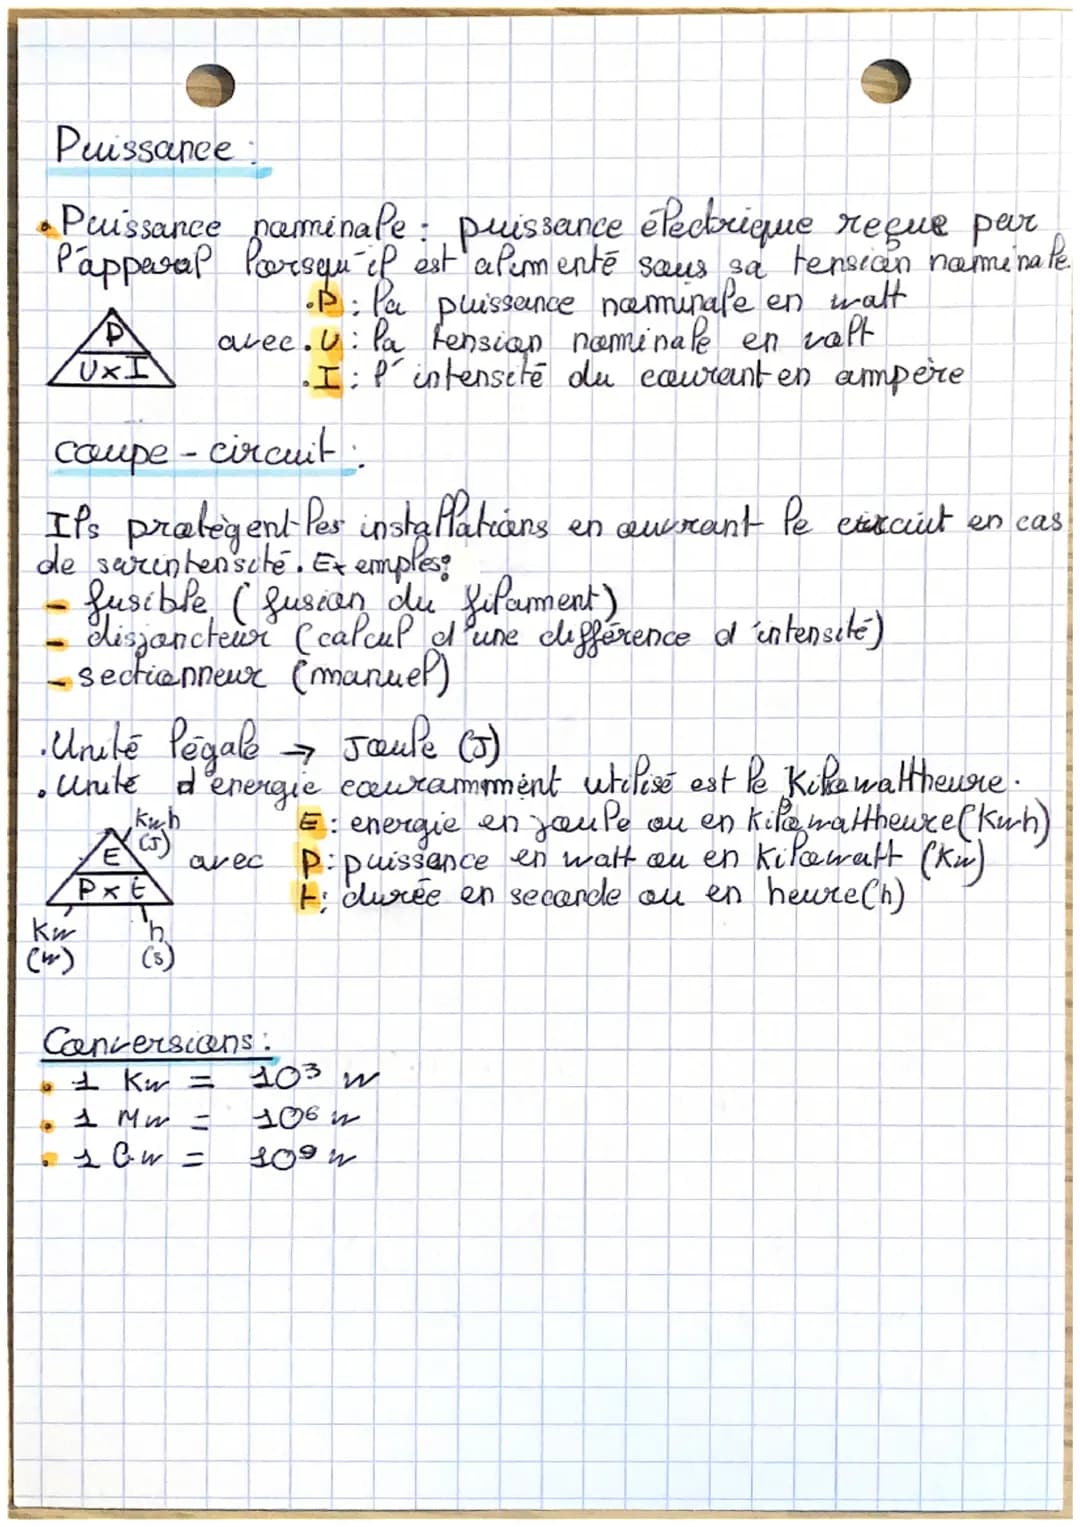 Puissance :
• Puissance nominale : puissance électrique reçue par
l'appareil lorsqu'il est alimenté sous sa tension nominale.
. P : la puissance nominale en watt
P
avec . U : la tension nominale en volt
U x I
. I : l'intensité du courant en ampère
coupe - circuit :
Ils protègent les installations en ouvrant le circuit en cas
de surintensité. Exemples:
- fusible (fusion du filament)
- disjoncteur (calcul d'une différence d'intensité)
- sectionneur (manuel)
. Unité légale → Joule (J)
. Unité d'énergie courammment utilisé est le Kilowattheure.
kwh
(J)
E : energie en joule ou en kilowattheure (Kwh)
E
avec P : puissance en watt ou en kilowatt (Kw)
P x t
t : durée en seconde ou en heure (h)
Kw h
(w) (s)
Conversions :
• 1 Kw = 10³ w
• 1 Mw = 10⁶ w
• 1 Gw = 10⁹ w